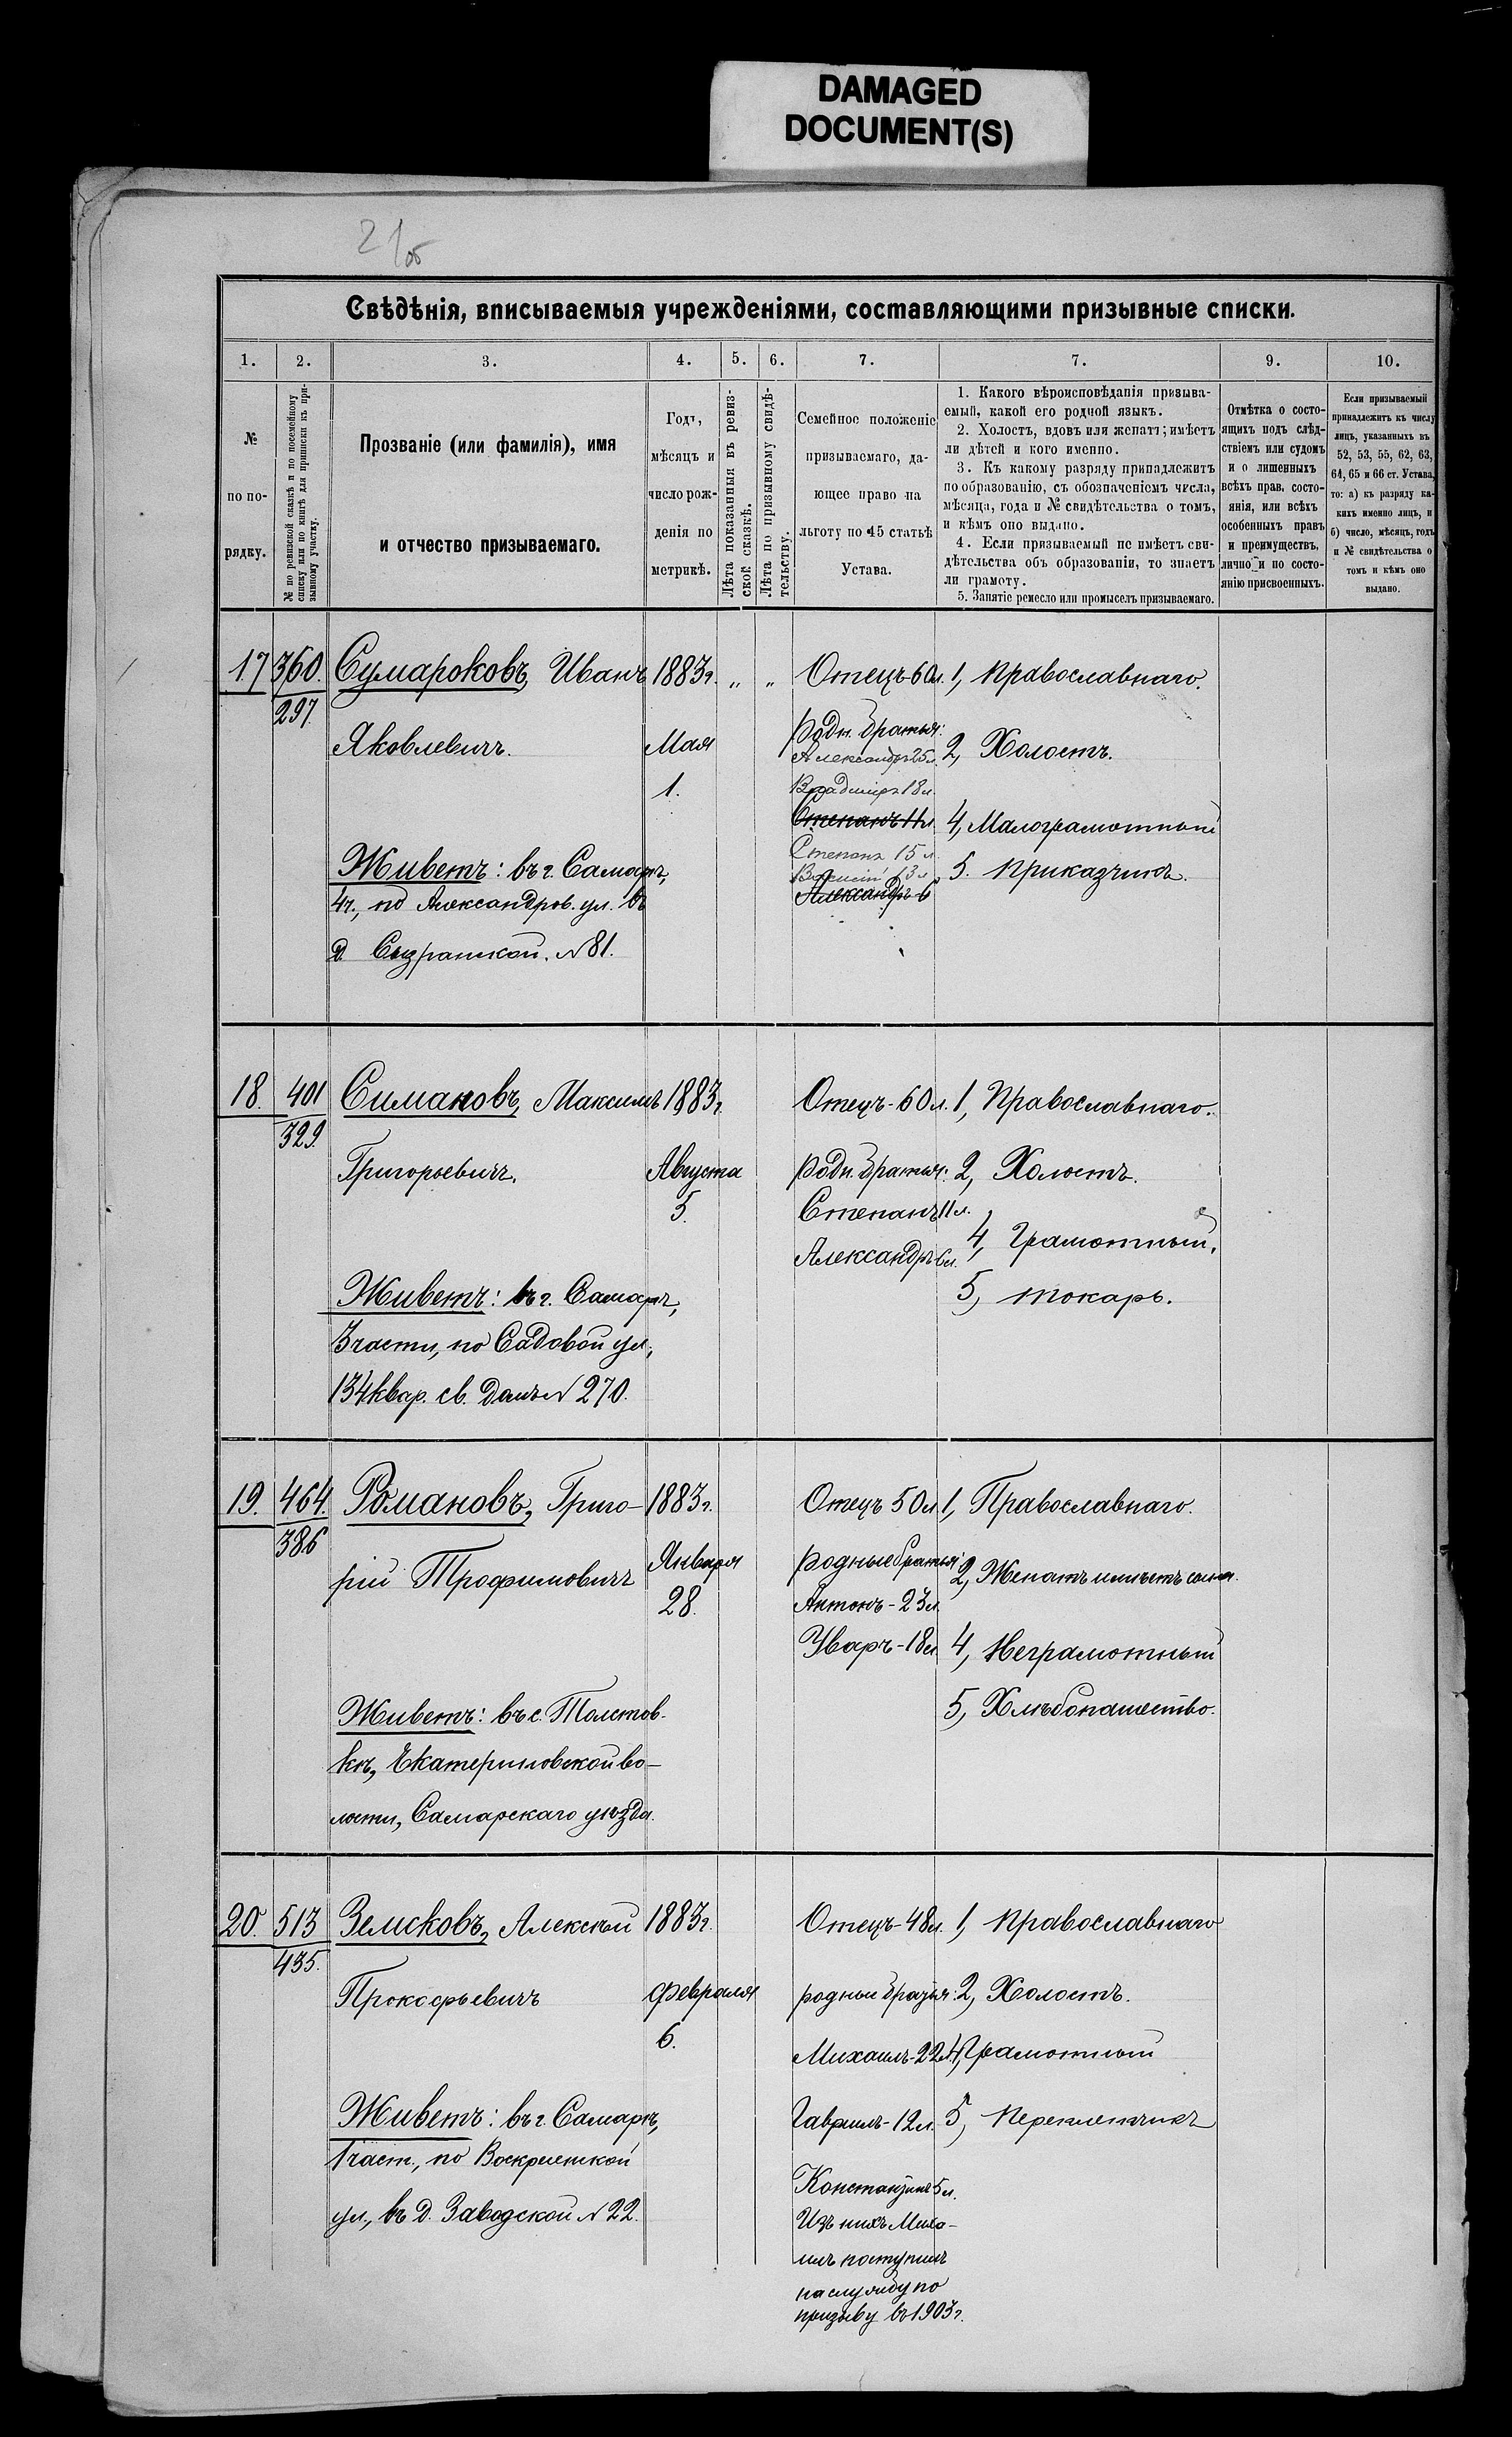 DAMAGED
DOCUMENT(S)
21об
Свѣдѣнія, вписываемыя учрежденіями, составляющими призывные списки.
1. 2. 3. 4. 5. 6. 7. 7. 9. 10.
№
по по-
рядку.
№ по ревизской сказкѣ и по посемейному
списку или по книгѣ для приписки къ при-
зывному участку.
Прозваніе (или фамилія), имя
и отчество призываемаго.
Годъ,
мѣсяцъ и
число рож-
денія по
метрикѣ.
Лѣта показанныя въ ревиз-
ской сказкѣ.
Лѣта по призывному свидѣ-
тельству.
Семейное положеніе
призываемаго, да-
ющее право на
льготу по 45 статьѣ
Устава.
1. Какого вѣроисповѣданія призыва-
емый, какой его родной языкъ.
2. Холостъ, вдовъ или женатъ; имѣетъ
ли дѣтей и кого именно.
3. Къ какому разряду принадлежитъ
по образованію, съ обозначеніемъ числа,
мѣсяца, года и № свидѣтельства о томъ,
и кѣмъ оно выдано.
4. Если призываемый не имѣетъ сви-
дѣтельства объ образованіи, то знаетъ
ли грамоту.
5. Занятіе ремесло или промыселъ призываемаго.
Отмѣтка о состо-
ящихъ подъ слѣд-
ствіемъ или судомъ
и о лишенныхъ
всѣхъ прав, состо-
янія, или всѣхъ
особенныхъ правъ
и преимуществъ,
лично и по состо-
янію присвоенныхъ.
Если призываемый
принадлежитъ къ числу
лицъ, указанныхъ въ
52, 53, 55, 62, 63,
64, 65 и 66 ст. Устава,
то: а) къ разряду ка-
кихъ именно лицъ, и
б) число, мѣсяцъ, годъ
и № свидѣтельства о
томъ и кѣмъ оно
выдано.
17 360. Сумароковъ, Иванъ 1883г. „ „ Отецъ-60л. 1, Православнаго.
297.
Яковлевичъ. Мая родн. братья: 2, Холостъ.
Александръ 25л.
1. Владиміръ 18л.
Степанъ 11л. 4, Малограмотный
Степанъ 15л.
Живетъ: въ г. Самарѣ, 13л. 5. Приказчикъ.
4ч., по Александров. ул. въ Александръ 6
д. Сызранской. №81.
18. 401 Симаковъ, Максимъ 1883г. Отецъ-60л. 1, Православнаго.
329.
Григорьевичъ. Августа родн. братья: 2, Холостъ.
5. Степанъ 11л.
Александръ 6л. 4, Грамотный.
Живетъ: въ г. Самарѣ, 5, токарь.
3 части, по Садовой ул.,
134 квар. св. домъ №270.
19. 464. Романовъ, Григо- 1883г. Отецъ 50л. 1, Православнаго.
386
рій Трофимовичъ Января родные братья: 2, Женатъ имѣетъ сына.
28. Антонъ-23л.
Уваръ-18л. 4, Неграмотный
Живетъ: въ с. Толстов- 5, Хлѣбопашество.
кѣ, Екатериновской во-
лости, Самарскаго уѣзда.
20. 513 Земсковъ, Алексѣй 1883г. Отецъ-48л. 1, Православнаго
435.
Прокофьевичъ Февраля родные братья: 2, Холостъ.
6. Михаилъ-22л. 4, Грамотный
Живетъ: въ г. Самарѣ, Гавріилъ-12л. 5, Переплетчикъ
1 част., по Воскресенской Константинъ 5л.
ул., въ д. Заводской №22. Изъ нихъ Миха-
илъ поступилъ
на службу по
призыву въ 1903г.